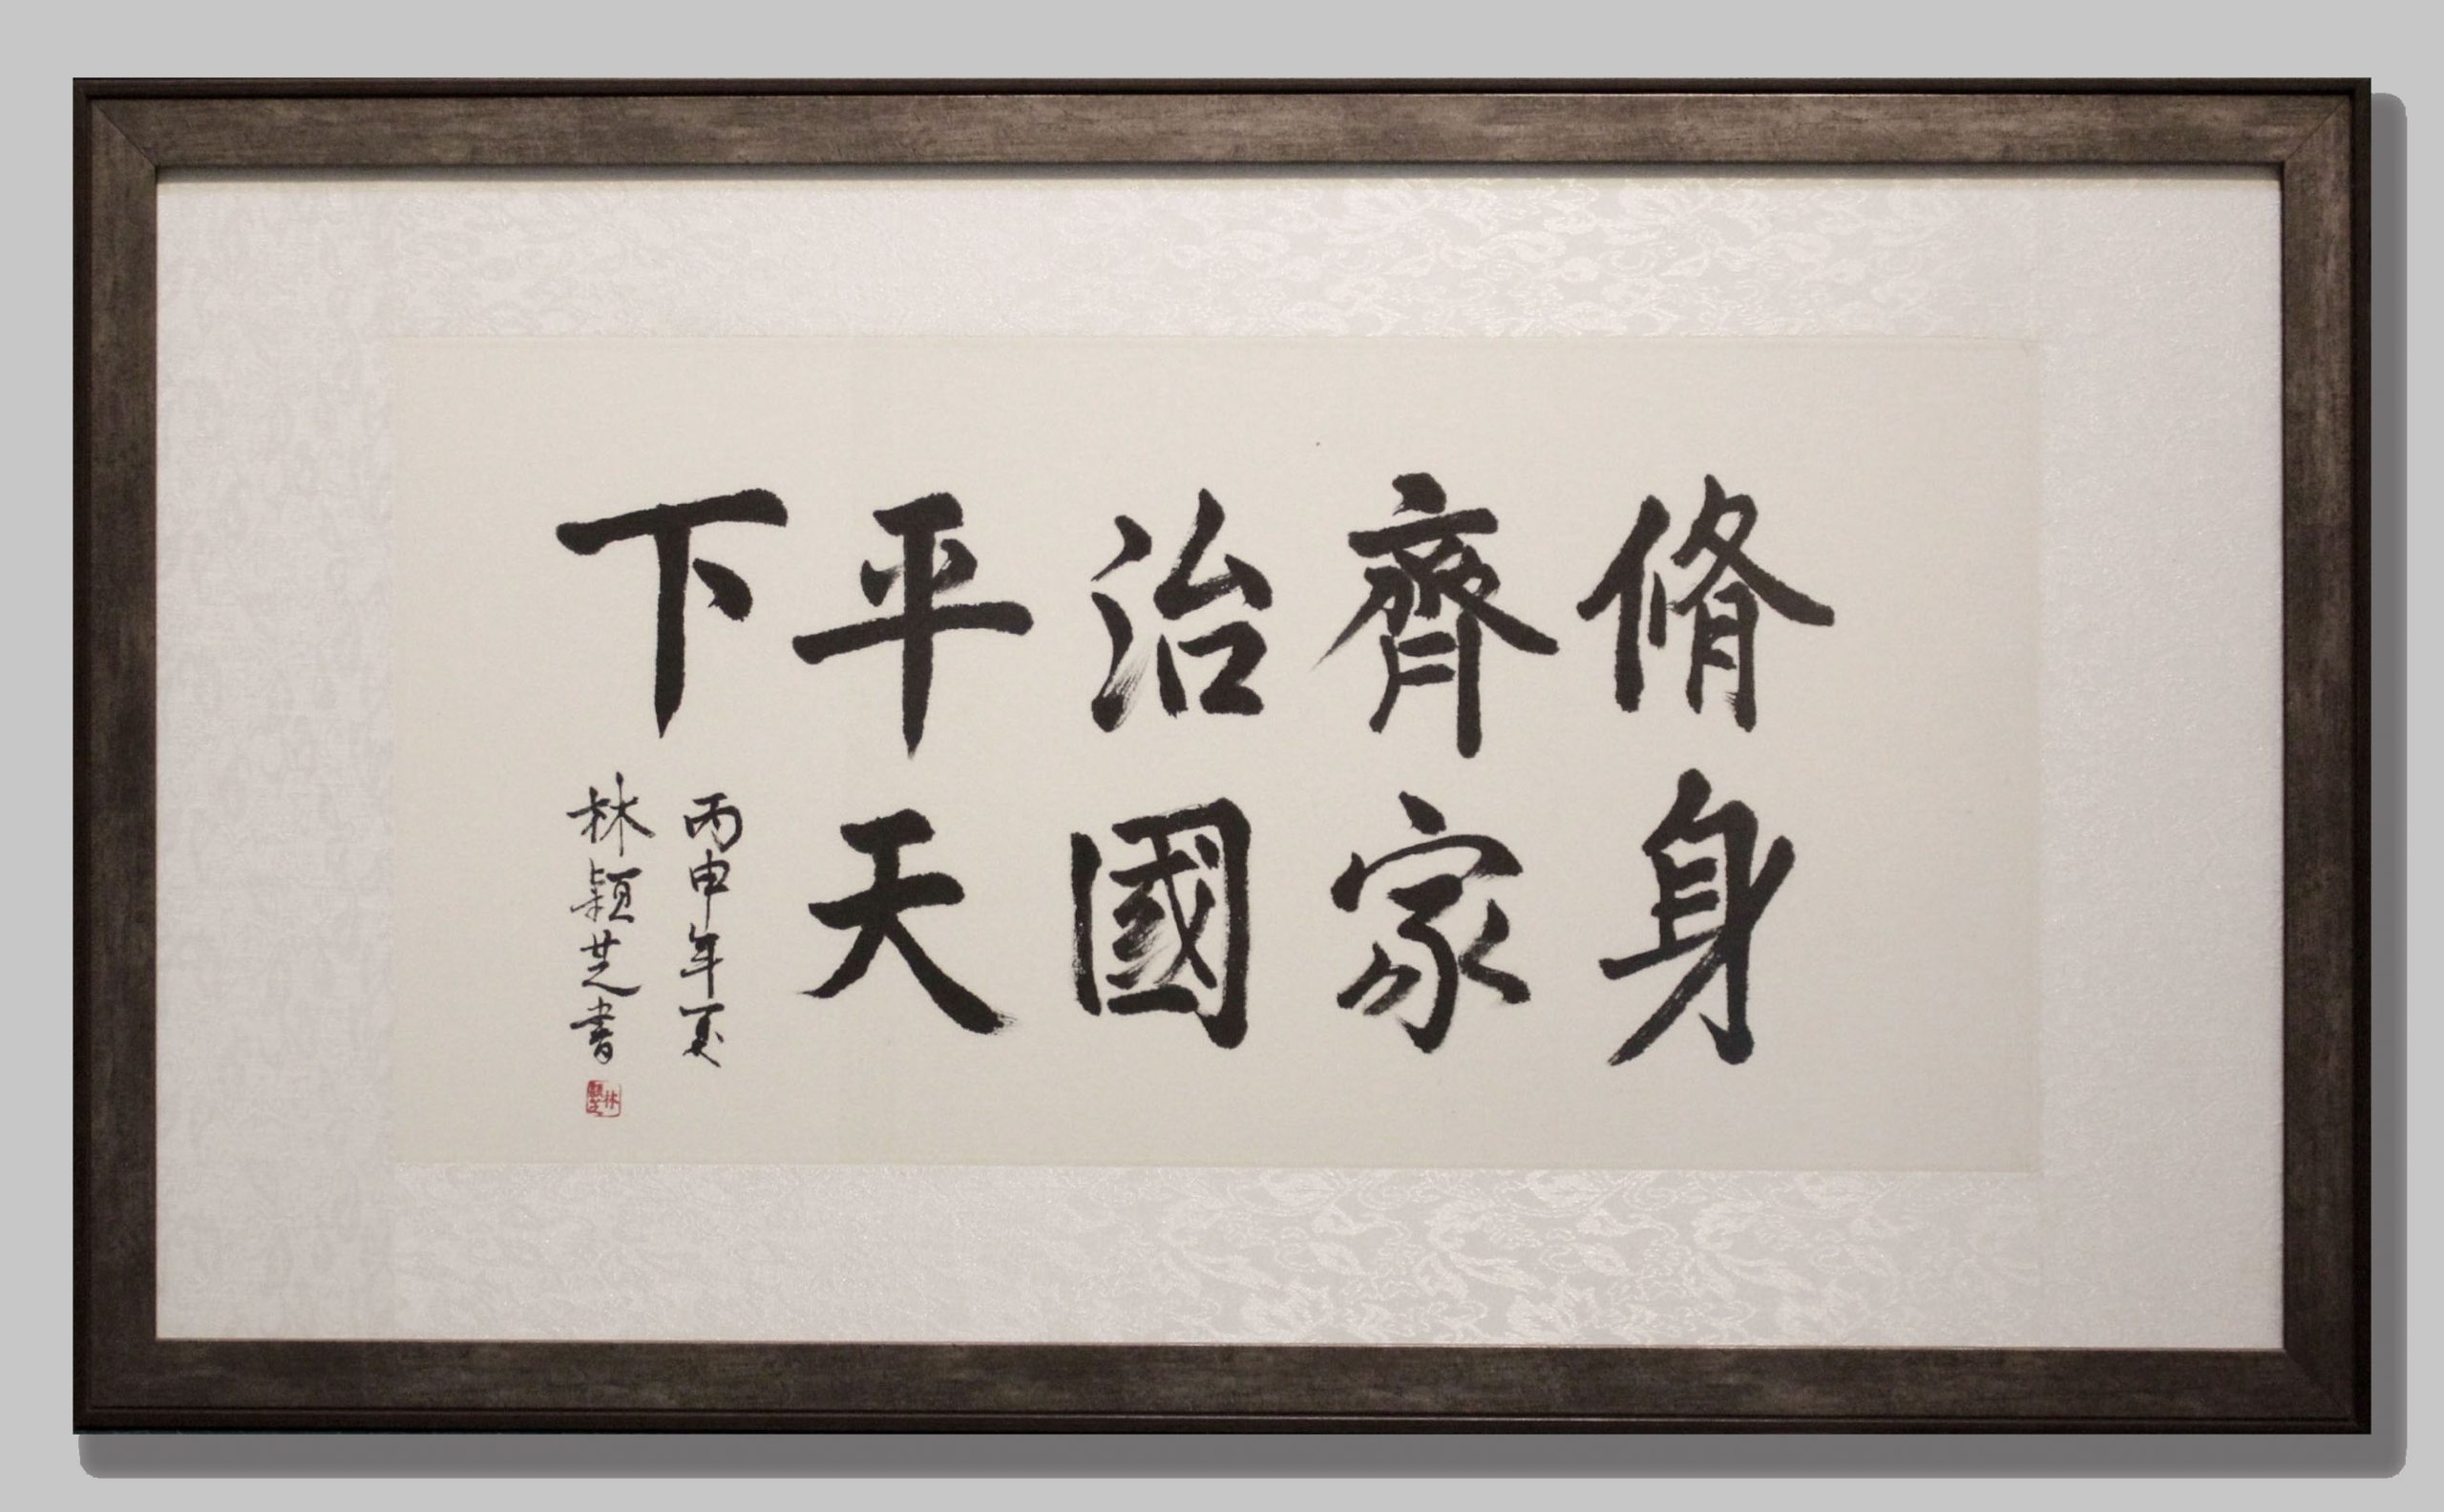 脩身
齊家
治國
平天
下
丙申年夏
林穎芝書